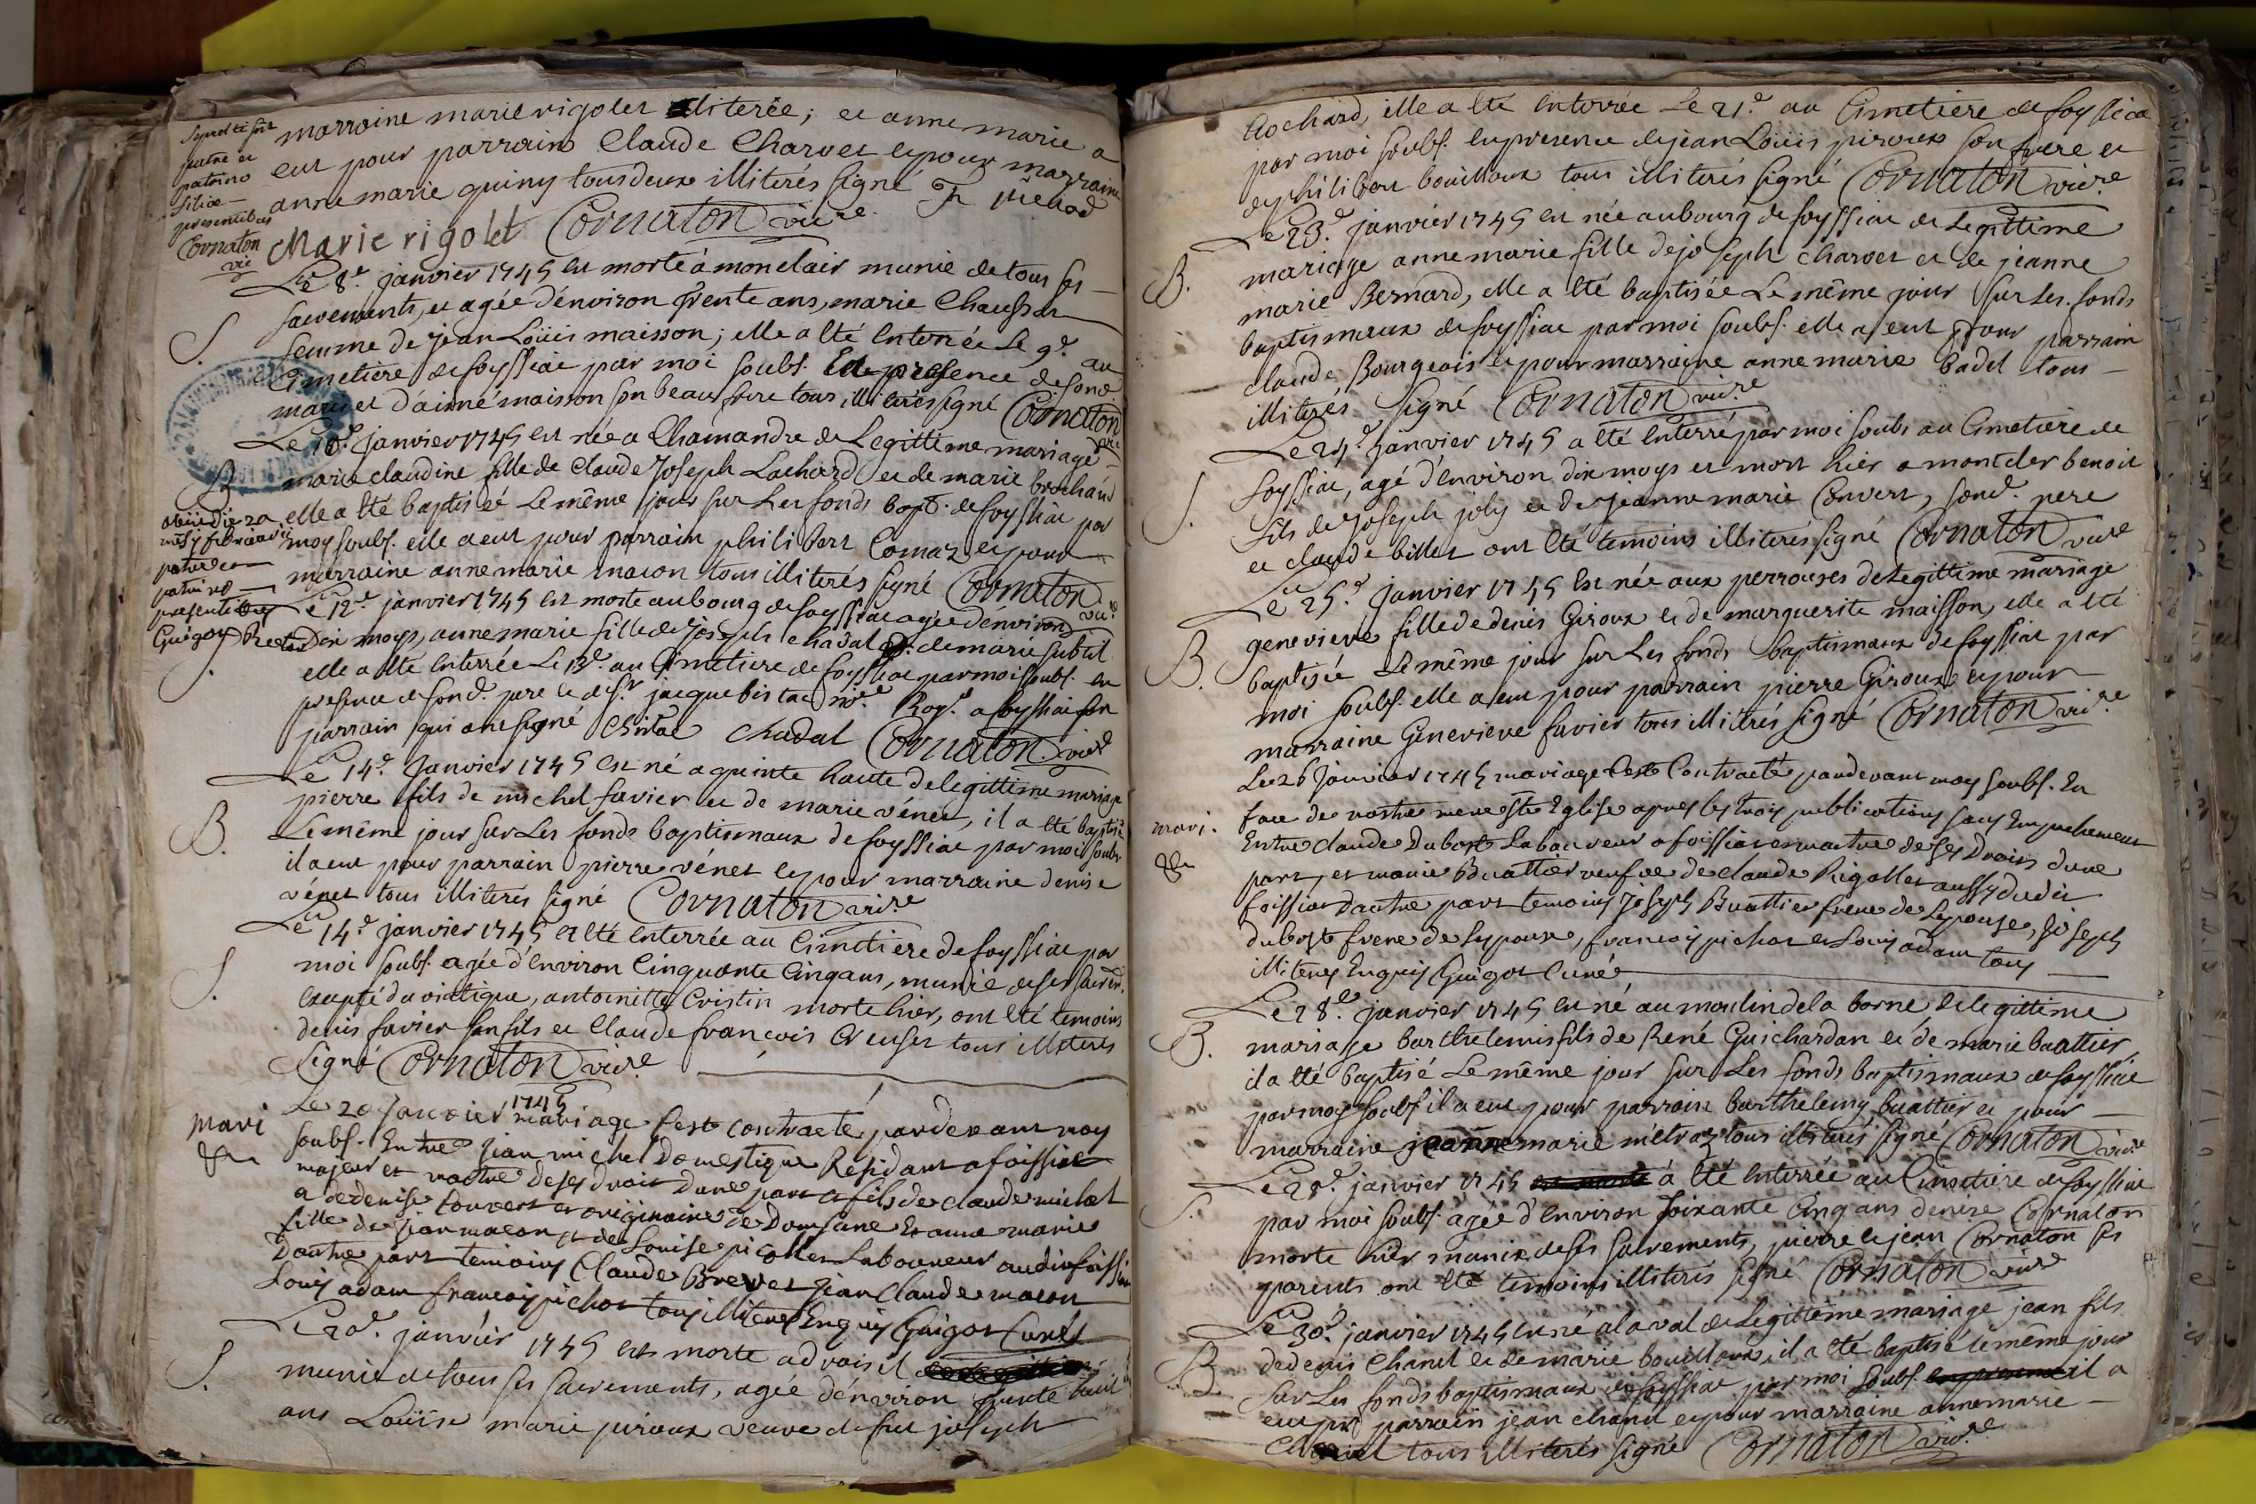 marraine marie rigolet illiterée; et anne marie a
eut pour parrain Claude Charvet et pour marraine
anne marie quiny tous deux illiterés signé
Marie rigolet Cornaton vic.re
patre et
patrino
filiæ
presentibus
Cornaton
vic
Le 8.e janvier 1745 est morte à monclair munie de tous ses
sacrements, et agée d'énviron trente ans, marie Chausson
S.
femme de jean Loüis maisson; elle a lté Enterrée Le 9.e au
Cimetiere de foyssiac par moi soubs. En presence de sond.
mari et d'aimé maisson son beau frere tous illiterés signé Cornaton
vic.re
Le 10.e janvier 1745 est née a Chamandre de Legittime mariage
B
marie claudine fille de Claude Joseph Lachard et de marie brochand
elle a lté baptisée Le même jour sur Les fonds bapt. de foyssiac par
moy soubs. elle a eut pour parrain philibert Comaz et pour
marraine anne marie macon tous illiterés signé Cornaton
vic.re
patre et
patrino
presentibus
Guigot
Le 12.e janvier 1745 est morte au bourg de foyssiac agée d'énviron
Dix moys, anne marie fille de joseph chadal et de marie subtil
S.
elle a lté Enterrée Le 13.e au Cimetiere de foyssiac par moi soubs. en
presence de sond. pere et de s.r jacque bistac no.re Roy.l a foyssiac son
parrain qui ont signé Bistac chadal Cornaton vic.re
Le 14.e Janvier 1745 est né a quinte haute de legittime mariage
pierre fils de michel favier et de marie vénet, il a lté baptisé
B.
Le même jour sur Les fonds baptismaux de foyssiac par moi soubs.
il a eut pour parrain pierre vénet et pour marraine denise
vénet tous illiterés signé Cornaton vic.re
Le 14.e janvier 1745 a lté Enterrée au Cimetiere de foyssiac par
moi soubs. agée d'énviron Cinquante Cinq ans, munie de ses sacrem.
S.
Excepté du viatique, antoinette Cristin morte hier, ont lté temoins
denis favier son fils et Claude françois Creuset tous illiterés
signé Cornaton vic.re
Le 20 Janvier 1745 mariage sest contracté pardevant moy
mari
soubs. Entre jean michel Domestique Résidant a foissiat
majeur et maitre de ses droits Dune part et fils de claude michel
a de denise Convert et originaire de Domsure Et anne marie
fille de jean macon et de Louise picollet Laboureur audit foissiat
Dautre part temoins Claude Brevet jean Claude macon
Louis adam francois pichot tous illiterés Enquis Guigot Curé
Le 20.e janvier 1745 est morte
S.
munie de tous ses sacrements, agée d'énviron trente huit
ans Loüise marie piroux veuve de feu joseph
Rochard, elle a lté Enterrée Le 21.e au Cimetiere de foyssiac
par moi soubs. En presence de jean Loüis piroux son frere et
de philibert bouilloux tous illiterés signé Cornaton vic.re
Le 23.e janvier 1745 est née au bourg de foyssiac de Legittime
B.
mariage anne marie fille de joseph charvet et de jeanne
marie Bernard, elle a lté baptisée Le même jour sur Les fonds
baptismaux de foyssiac par moi soubs. elle a eut pour parrain
claude Bourgeois et pour marraine anne marie badel tous
illiterés signé Cornaton vic.re
Le 24.e janvier 1745 a lté Enterré par moi soubs au Cimetiere de
S.
foyssiac, agé d'énviron dix moys et mort hier a montcler benoit
fils de Joseph joly et de Jeanne marie Convert, sond. pere
et claude billet ont lté temoins illiterés signé Cornaton vic.re
Le 25.e janvier 1745 est née aux perrouses de Legittime mariage
B.
genevieve fille de denis Giroux et de marguerite maisson, elle a lté
baptisée Le même jour sur Les fonds baptismaux de foyssiac par
moi soubs. elle a eut pour parrain pierre Giroux et pour
marraine Genevieve favier tous illiterés signé Cornaton vic.re
Le 26 janvier 1745 mariage sest Contracté pardevant moy soubs. En
mari.
face de nostre mere ste Eglise apres les trois publications sans Empechement
Entre claude Dubost Laboureur a foissiat et maitre de ses Droits dune
part, et marie Buattier veufve de claude Rigollet aussy dudit
foissiat dautre part temoins joseph Buattier frere de Lepouse, joseph
dubost frere de Lepoux, francois pichot et Louis adam tous
illiterés Enquis Guigot Curé
Le 28.e janvier 1745 est né au moulin de la borne de legittime
B.
mariage barthelemi fils de René Guichardan et de marie buattier,
il a lté baptisé Le même jour sur Les fonds baptismaux de foyssiac
par moy soubs. il a eut pour parrain barthelemy buattier et pour
marraine jeanne marie métraz tous illiterés signé Cornaton vic.re
Le 28.e janvier 1745 à lté Enterrée au Cimetiere de foyssiac
S.
par moi soubs. agée d'énviron soixante Cinq ans denise Cornaton
morte hier munie de ses sacrements, pierre et jean Cornaton ses
parents ont lté temoins illiterés signé Cornaton vic.re
Le 30.e janvier 1745 est né a Laval de Legittime mariage jean fils
B.
de denis Chanel et de marie bouilloux, il a lté baptisé le même jour
sur Les fonds baptismaux de foyssiac par moi soubs. il a
eut pr parrain jean chanel et pour marraine anne marie
Chanel tous illiterés signé Cornaton vic.re